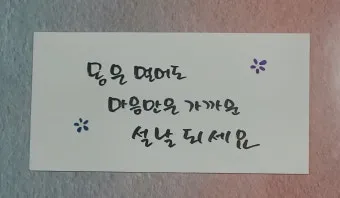 몸은 멀어도
마음만은 가까운
설날 되세요